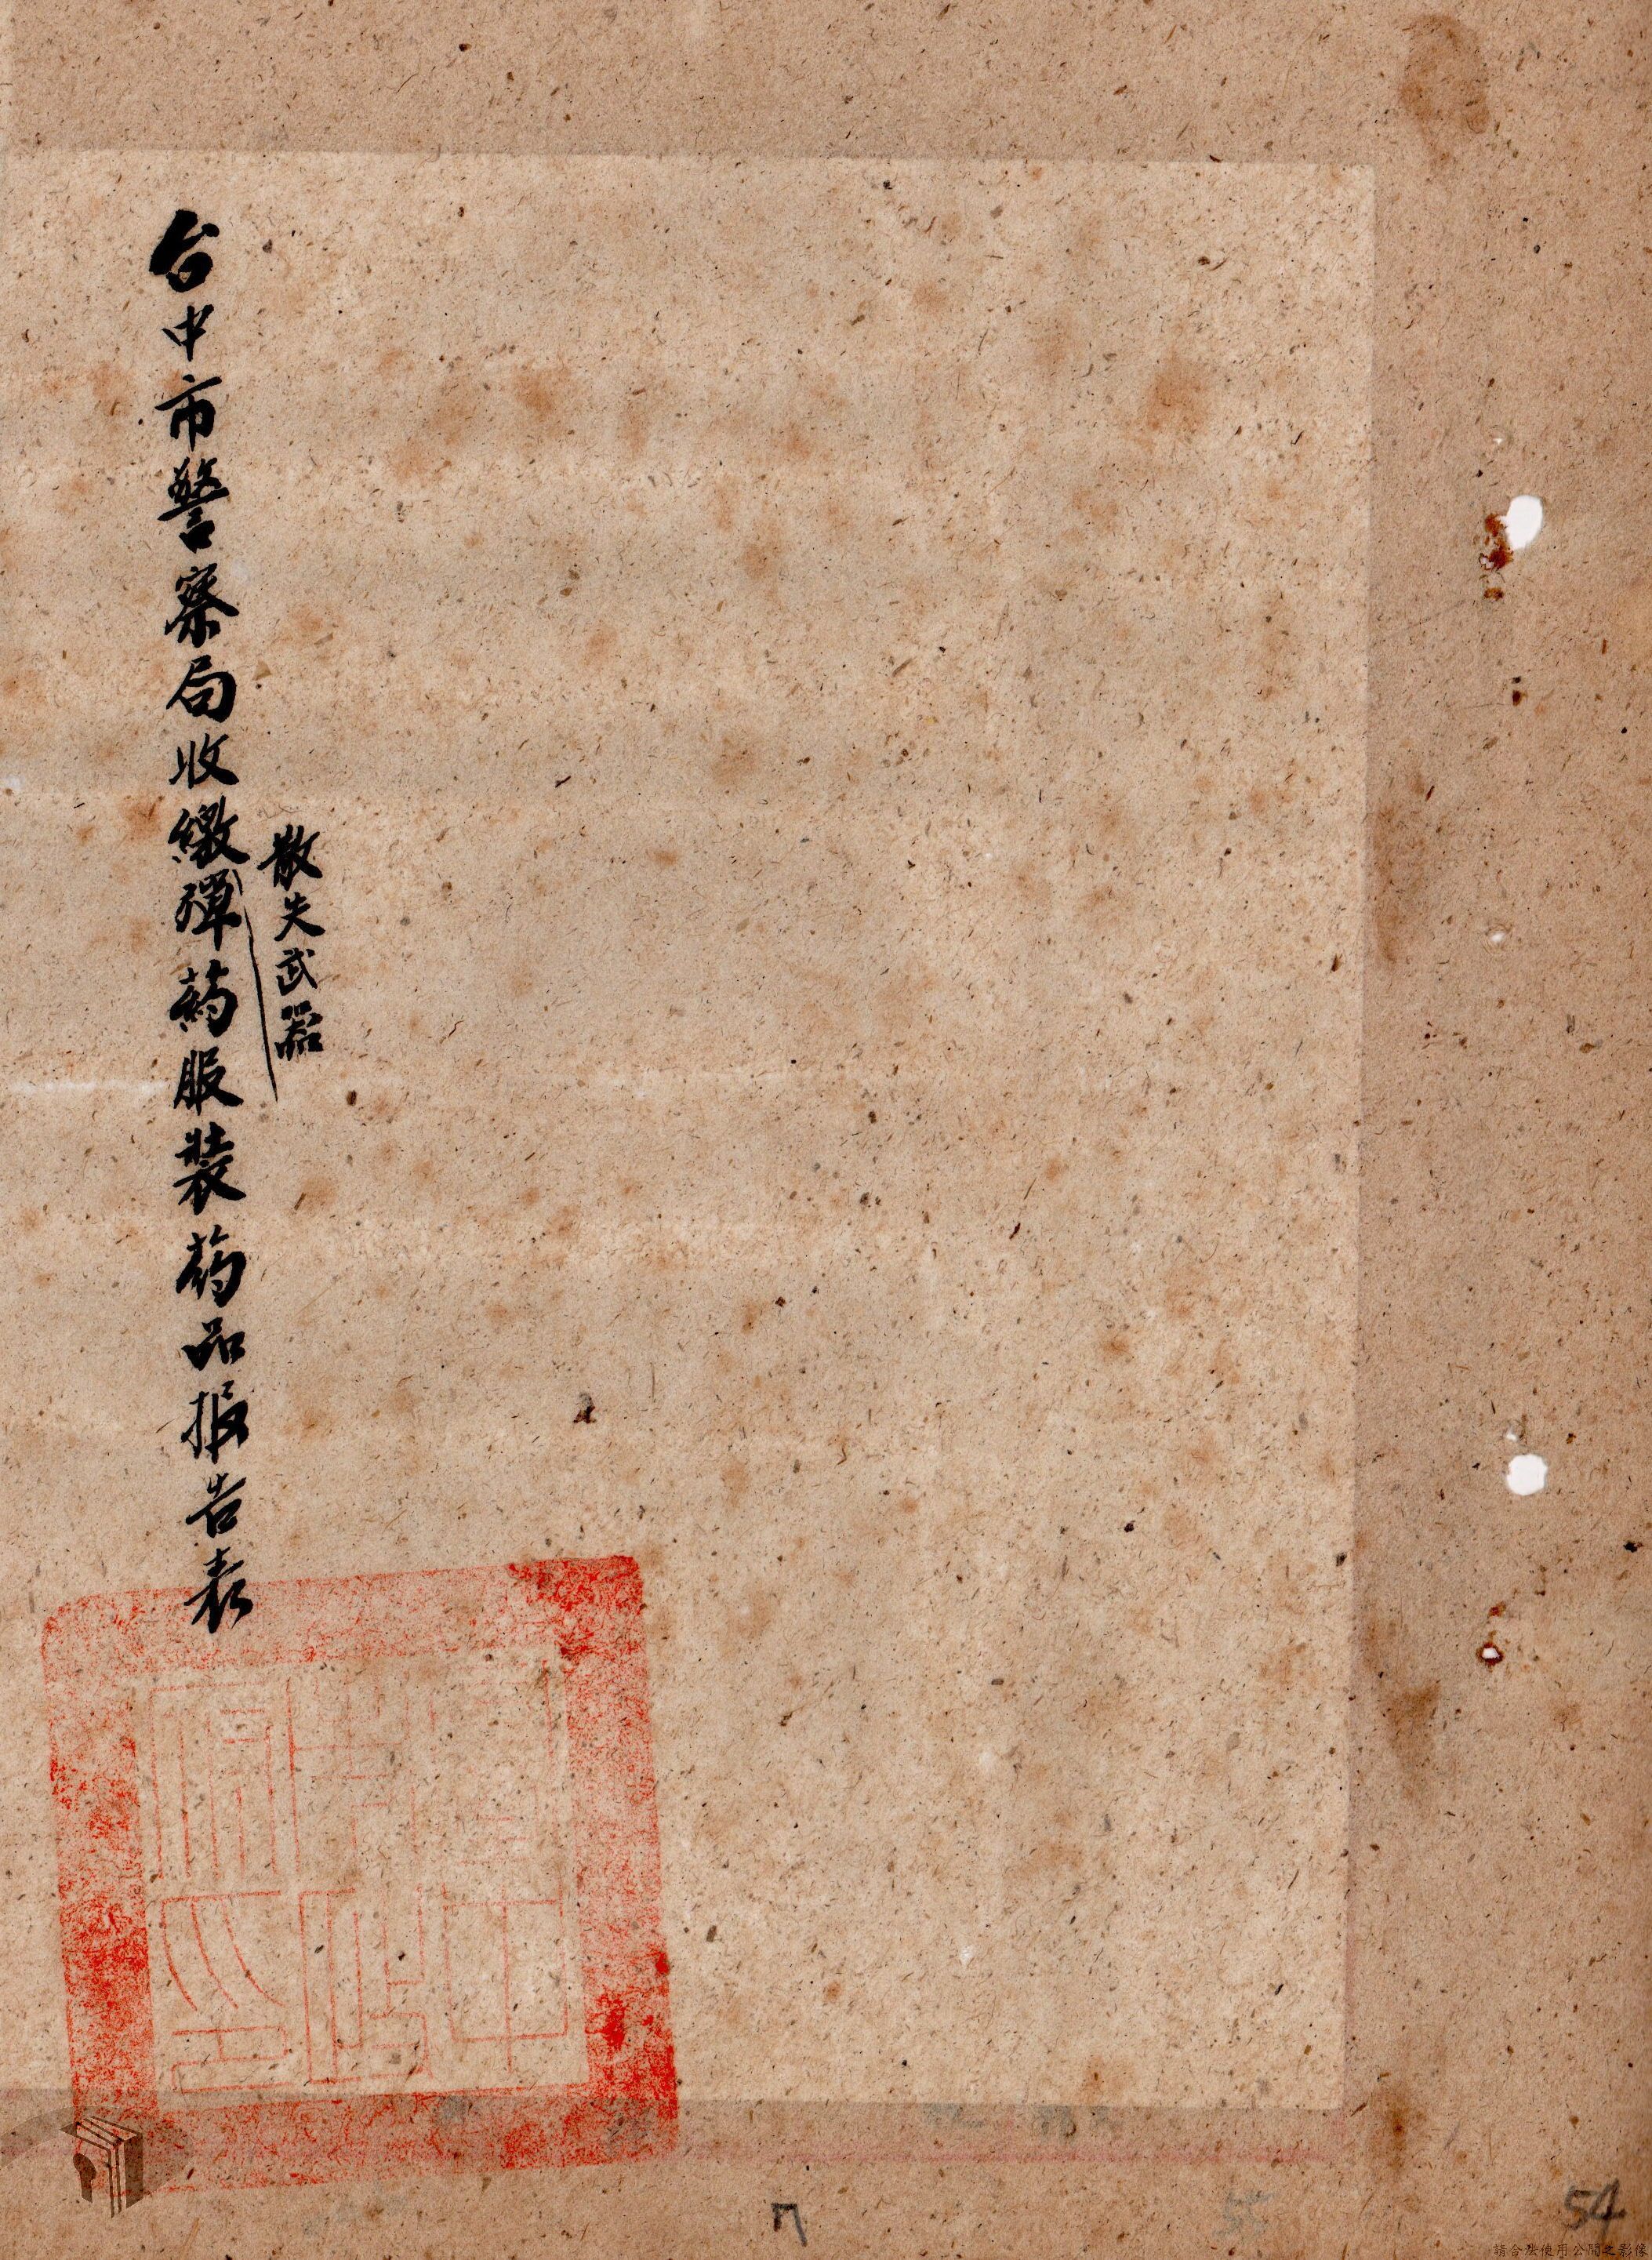 散失武器
台中市警察局收繳彈葯服裝葯品报告表
54
請合法使用公開之影像